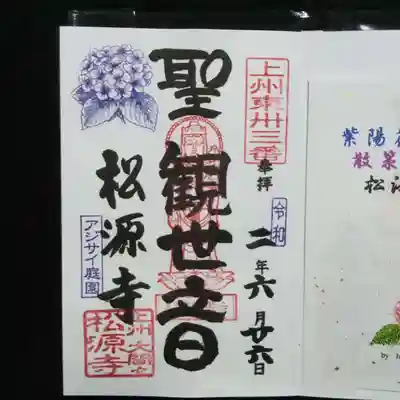 上州東卅三番
奉拝
令和二年六月廿六日
聖觀世音
松源寺
アジサイ庭園
上州大間々
松源寺
紫陽
松
by